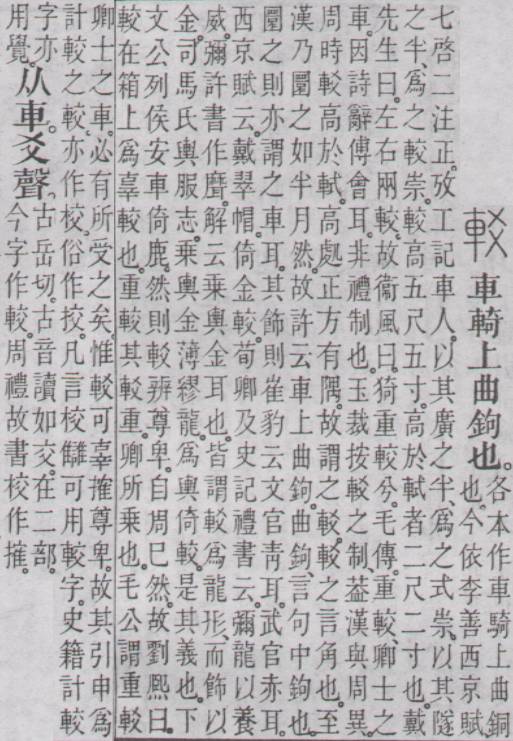 䡈 車輢上曲鉤也。各本作車騎上曲銅
也。今依李善西京賦、
七啓二注正。攷工記車人。以其廣之半、爲之式崇。以其隧
之半、爲之䡈崇。䡈高五尺五寸。高於軾者二尺二寸也。戴
先生曰。左右兩䡈。故衞風曰。猗重䡈兮。毛傳。重䡈、卿士之
車。因詩辭傅會耳。非禮制也。玉裁按䡈之制、葢漢與周異。
周時䡈高於軾。高處正方有隅。故謂之䡈。䡈之言角也。至
漢乃圜之如半月然。故許云車上曲鉤。曲鉤、言句中鉤也。
圜之則亦謂之車耳。其飾則崔豹云文官靑耳。武官赤耳。
西京賦云。戴翠帽。倚金䡈。荀卿及史記禮書云。彌龍以養
威。彌許書作𪎮。解云乘輿金耳也。皆謂䡈爲龍形、而飾以
金。司馬氏輿服志。乘輿金薄繆龍。爲輿倚䡈。是其義也。下
文公列侯安車倚鹿。然則䡈辨尊卑。自周巳然。故劉熙曰。
䡈在箱上爲辜䡈也。重䡈其䡈重。卿所乘也。毛公謂重䡈
卿士之車。必有所受之矣。惟䡈可辜搉尊卑。故其引申爲
計䡈之䡈。亦作校。俗作挍。凡言校讎可用䡈字。史籍計䡈
字亦
用覺。从車爻聲。古岳切。古音讀如交。在二部。
今字作較。周禮故書校作搉。